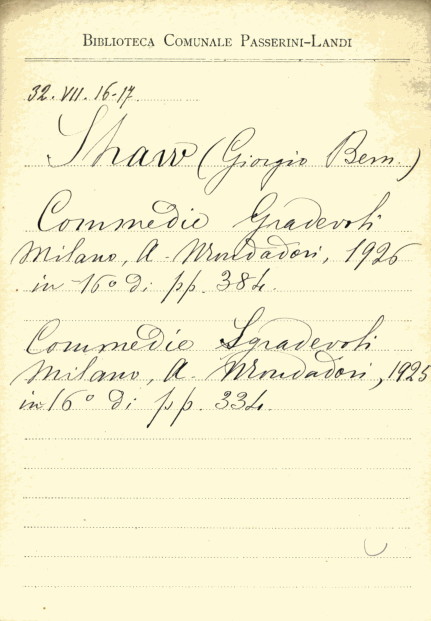 BIBLIOTECA COMUNALE PASSERINI-LANDI
32. VII. 16-17
Shaw (Giorgio Bern.)
Commedie Gradevoli
Milano, A. Mondadori, 1926
in 16° di pp. 384.
Commedie Sgradevoli
Milano, A. Mondadori, 1925
in 16° di pp. 334.